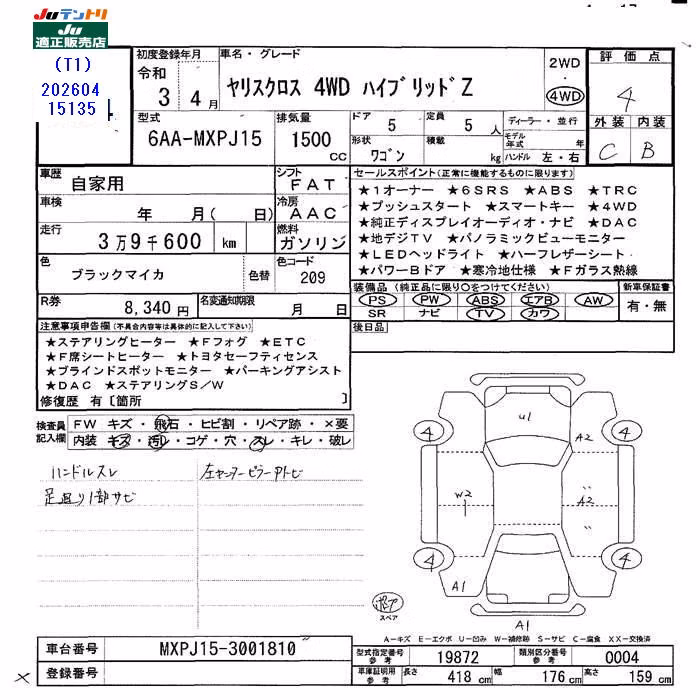 Juテントリ
Ju
適正販売店
(T1)
202604
15135
初度登録年月
令和 3 年 4 月
車名・グレード
ヤリスクロス 4WD ハイブリッドZ
2WD
・
4WD
評価点
4
外装 内装
C B
型式
6AA-MXPJ15
排気量
1500 cc
ドア 5
定員 5 人
形状 ワゴン
積載 kg
ディーラー・並行
モデル年式 年
ハンドル 左・右
車歴 自家用
シフト FAT
車検 年 月( 日)
冷房 AAC
走行 3万9千600 km
燃料 ガソリン
色 ブラックマイカ 色替
色コード 209
R券 8,340 円
名変通知期限 月 日
セールスポイント(正常に機能するものに限ります)
★1オーナー ★6SRS ★ABS ★TRC
★プッシュスタート ★スマートキー ★4WD
★純正ディスプレイオーディオ・ナビ ★DAC
★地デジTV ★パノラミックビューモニター
★LEDヘッドライト ★ハーフレザーシート
★パワーBドア ★寒冷地仕様 ★Fガラス熱線
装備品(純正品に限り○をつけてください) 新車保証書
PS PW ABS エアB AW 有・無
SR ナビ TV カワ
後日品
注意事項申告欄(不具合内容等は具体的に記入して下さい)
★ステアリングヒーター ★Fフォグ ★ETC
★F席シートヒーター ★トヨタセーフティセンス
★ブラインドスポットモニター ★パーキングアシスト
★DAC ★ステアリングS/W
修復歴 有〔箇所 〕
検査員記入欄
FW キズ・飛石・ヒビ割・リペア跡・×要
内装 キズ・汚レ・コゲ・穴・スレ・キレ・破レ
ハンドルスレ
足廻り1部サビ
U1
4 4
A2
W2 A2
〃
〃
4 4
A1
A1
スペア
A-キズ E-エクボ U-凹み W-補修跡 S-サビ C-腐食 XX-交換済
車台番号 MXPJ15-3001810
登録番号
×
型式指定番号 参考 19872
類別区分番号 参考 0004
車庫証明用 参考 長さ 418 cm 幅 176 cm 高さ 159 cm